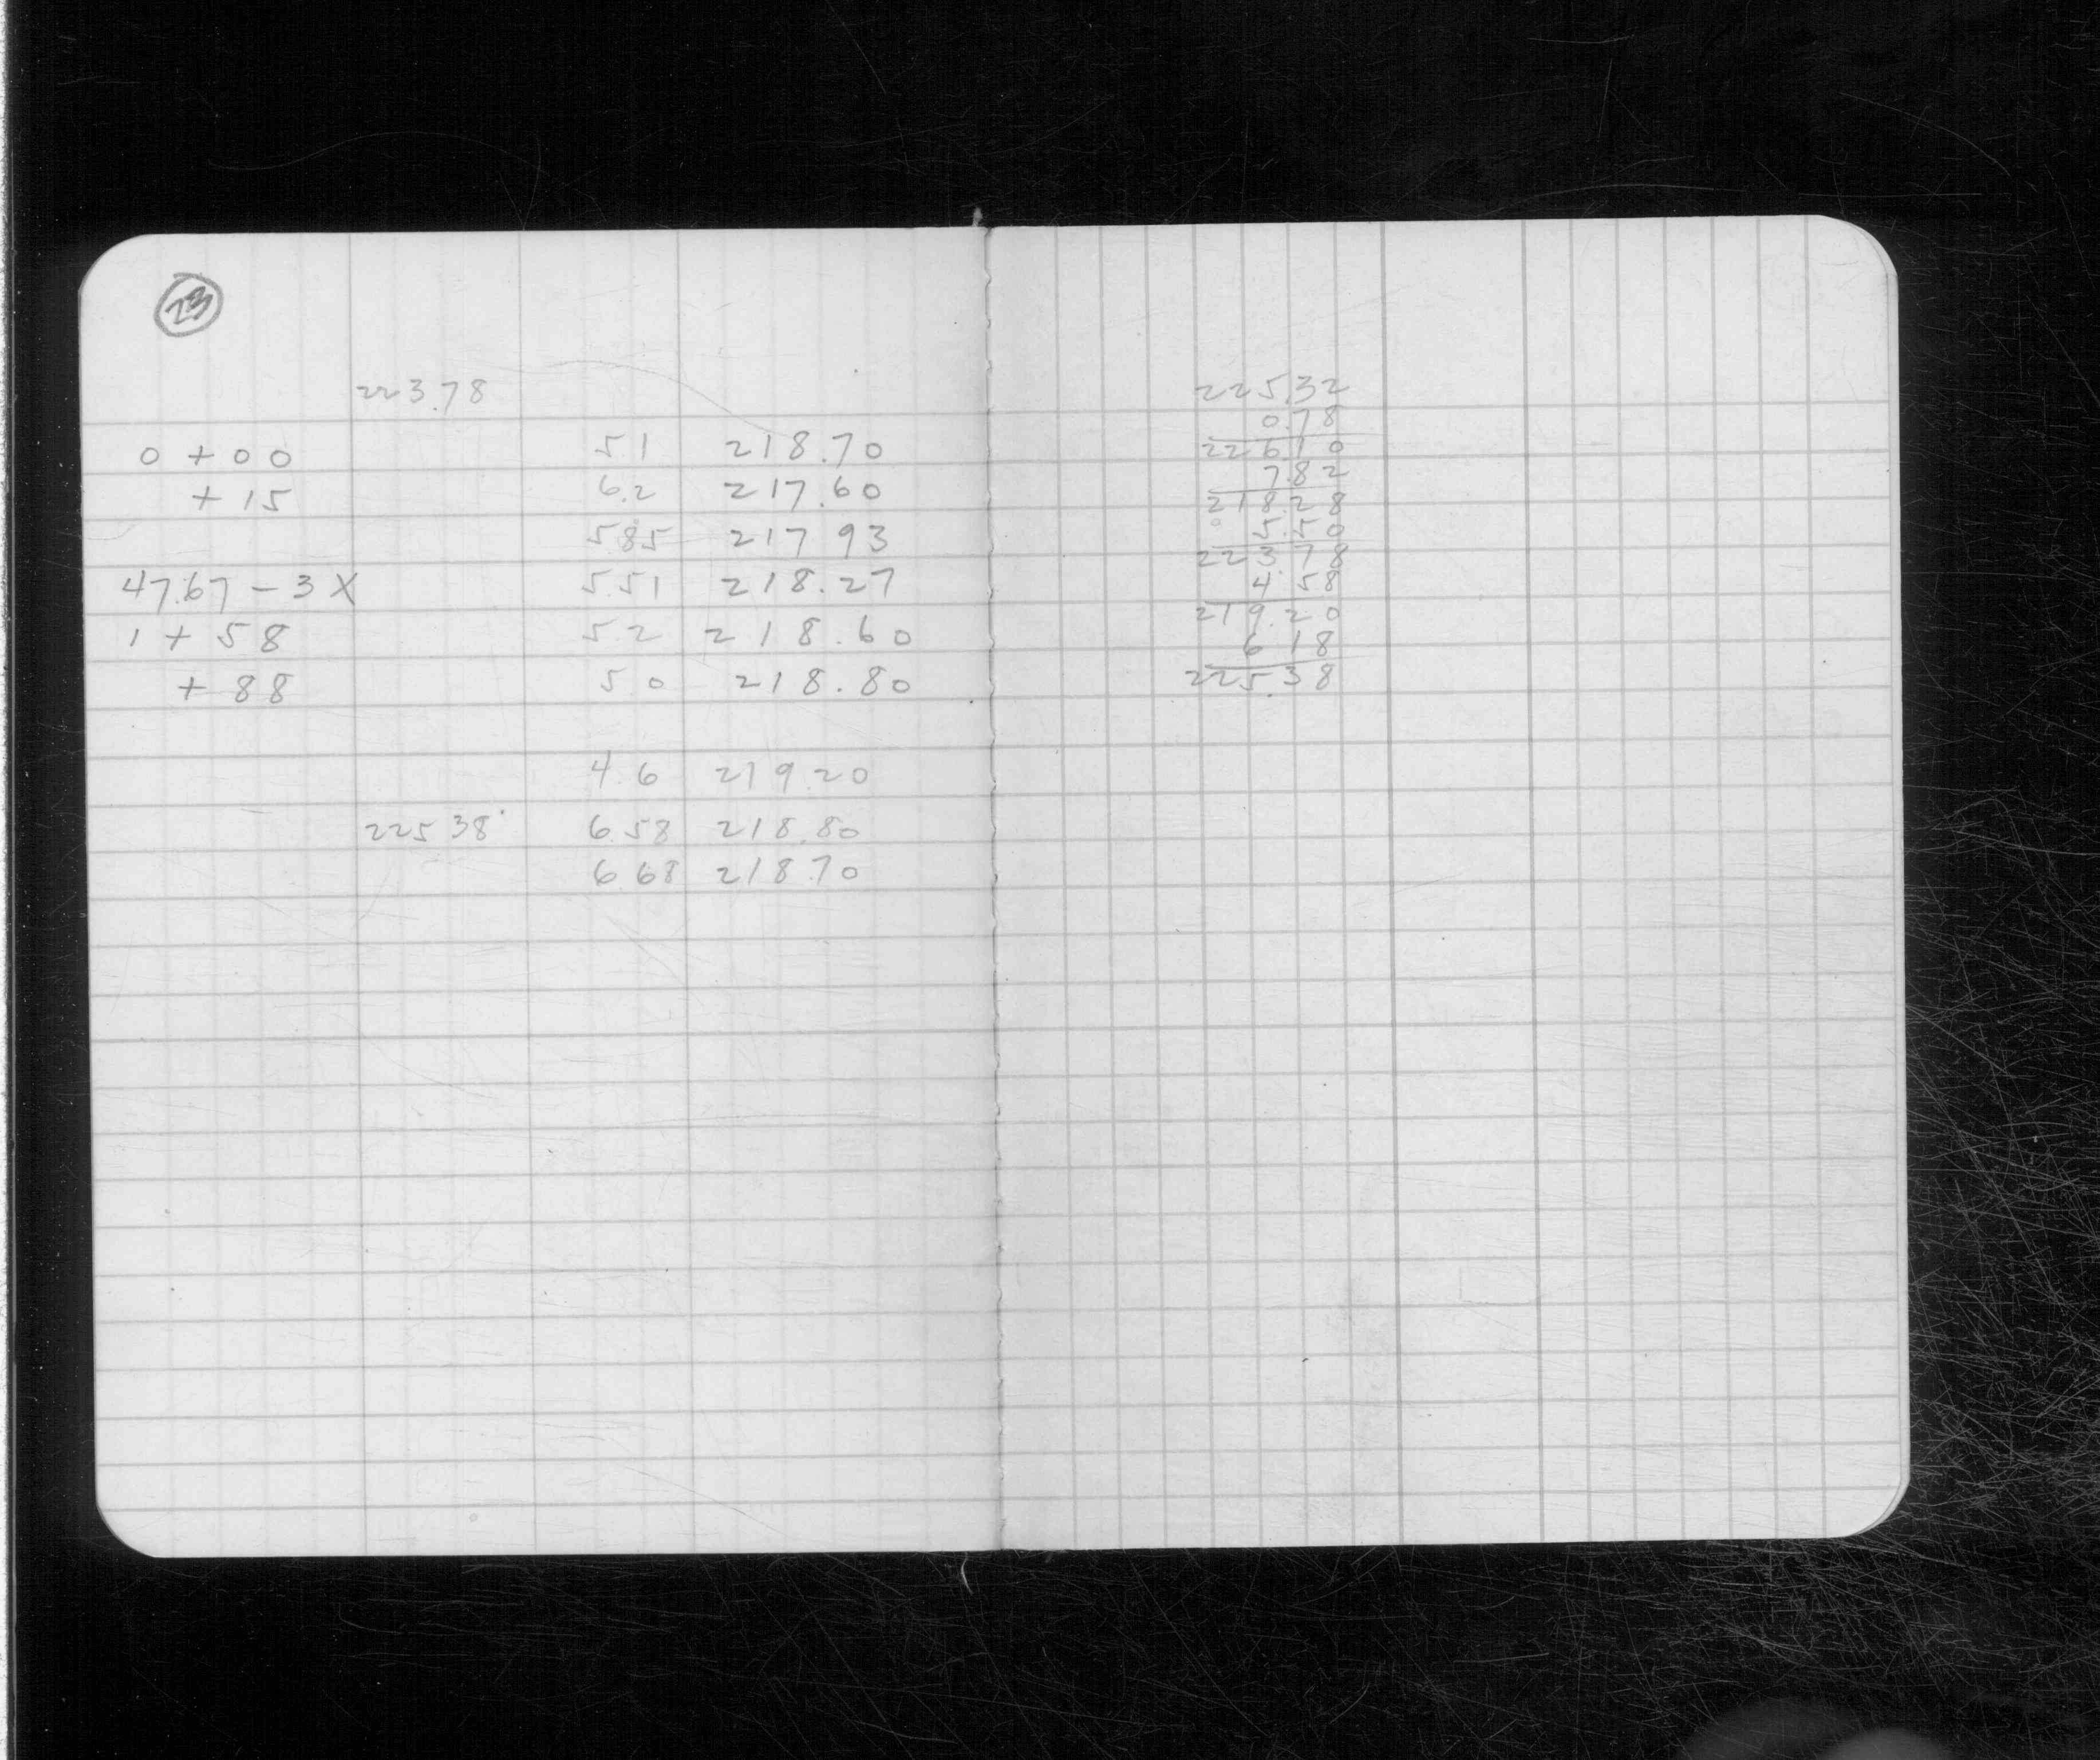 23
223.78
0+00 5 1 218.70
+15 6.2 217.60
5.85 217 93
47.67 - 3 X 5.51 218.27
1+58 5.2 218.60
+88 5.0 218.80
4.6 219.20
225 38 6.58 218.80
6.68 218.70
225.32
0.78
226 10
7.82
218.28
5.50
223.78
4.58
219.20
6 18
225.38